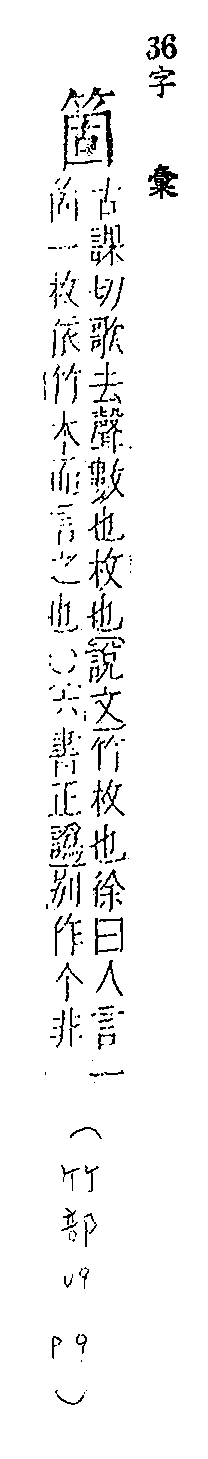 36字彙
箇
古課切歌去聲數也枚也[說文]竹枚也徐曰人言一
箇一枚依竹木而言之也○六書正譌別作个非
(竹部 P9)